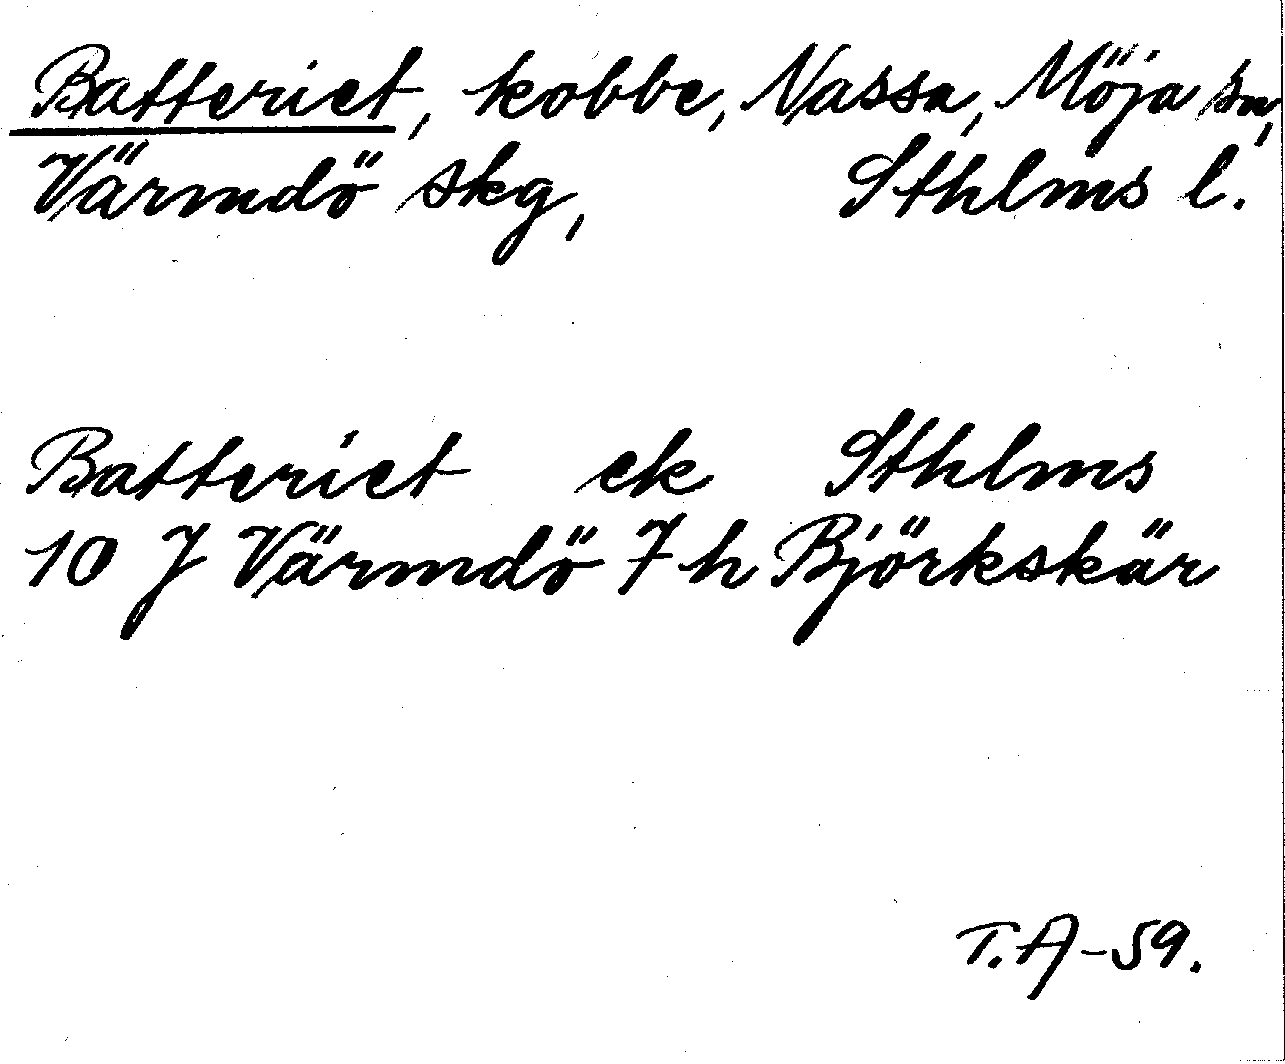 Batteriet, kobbe, Nassa, Möja sn,
Värmdö skg, Sthlms l.
Batteriet ek Sthlms
10 J Värmdö 7 h Björkskär
T.A-59.